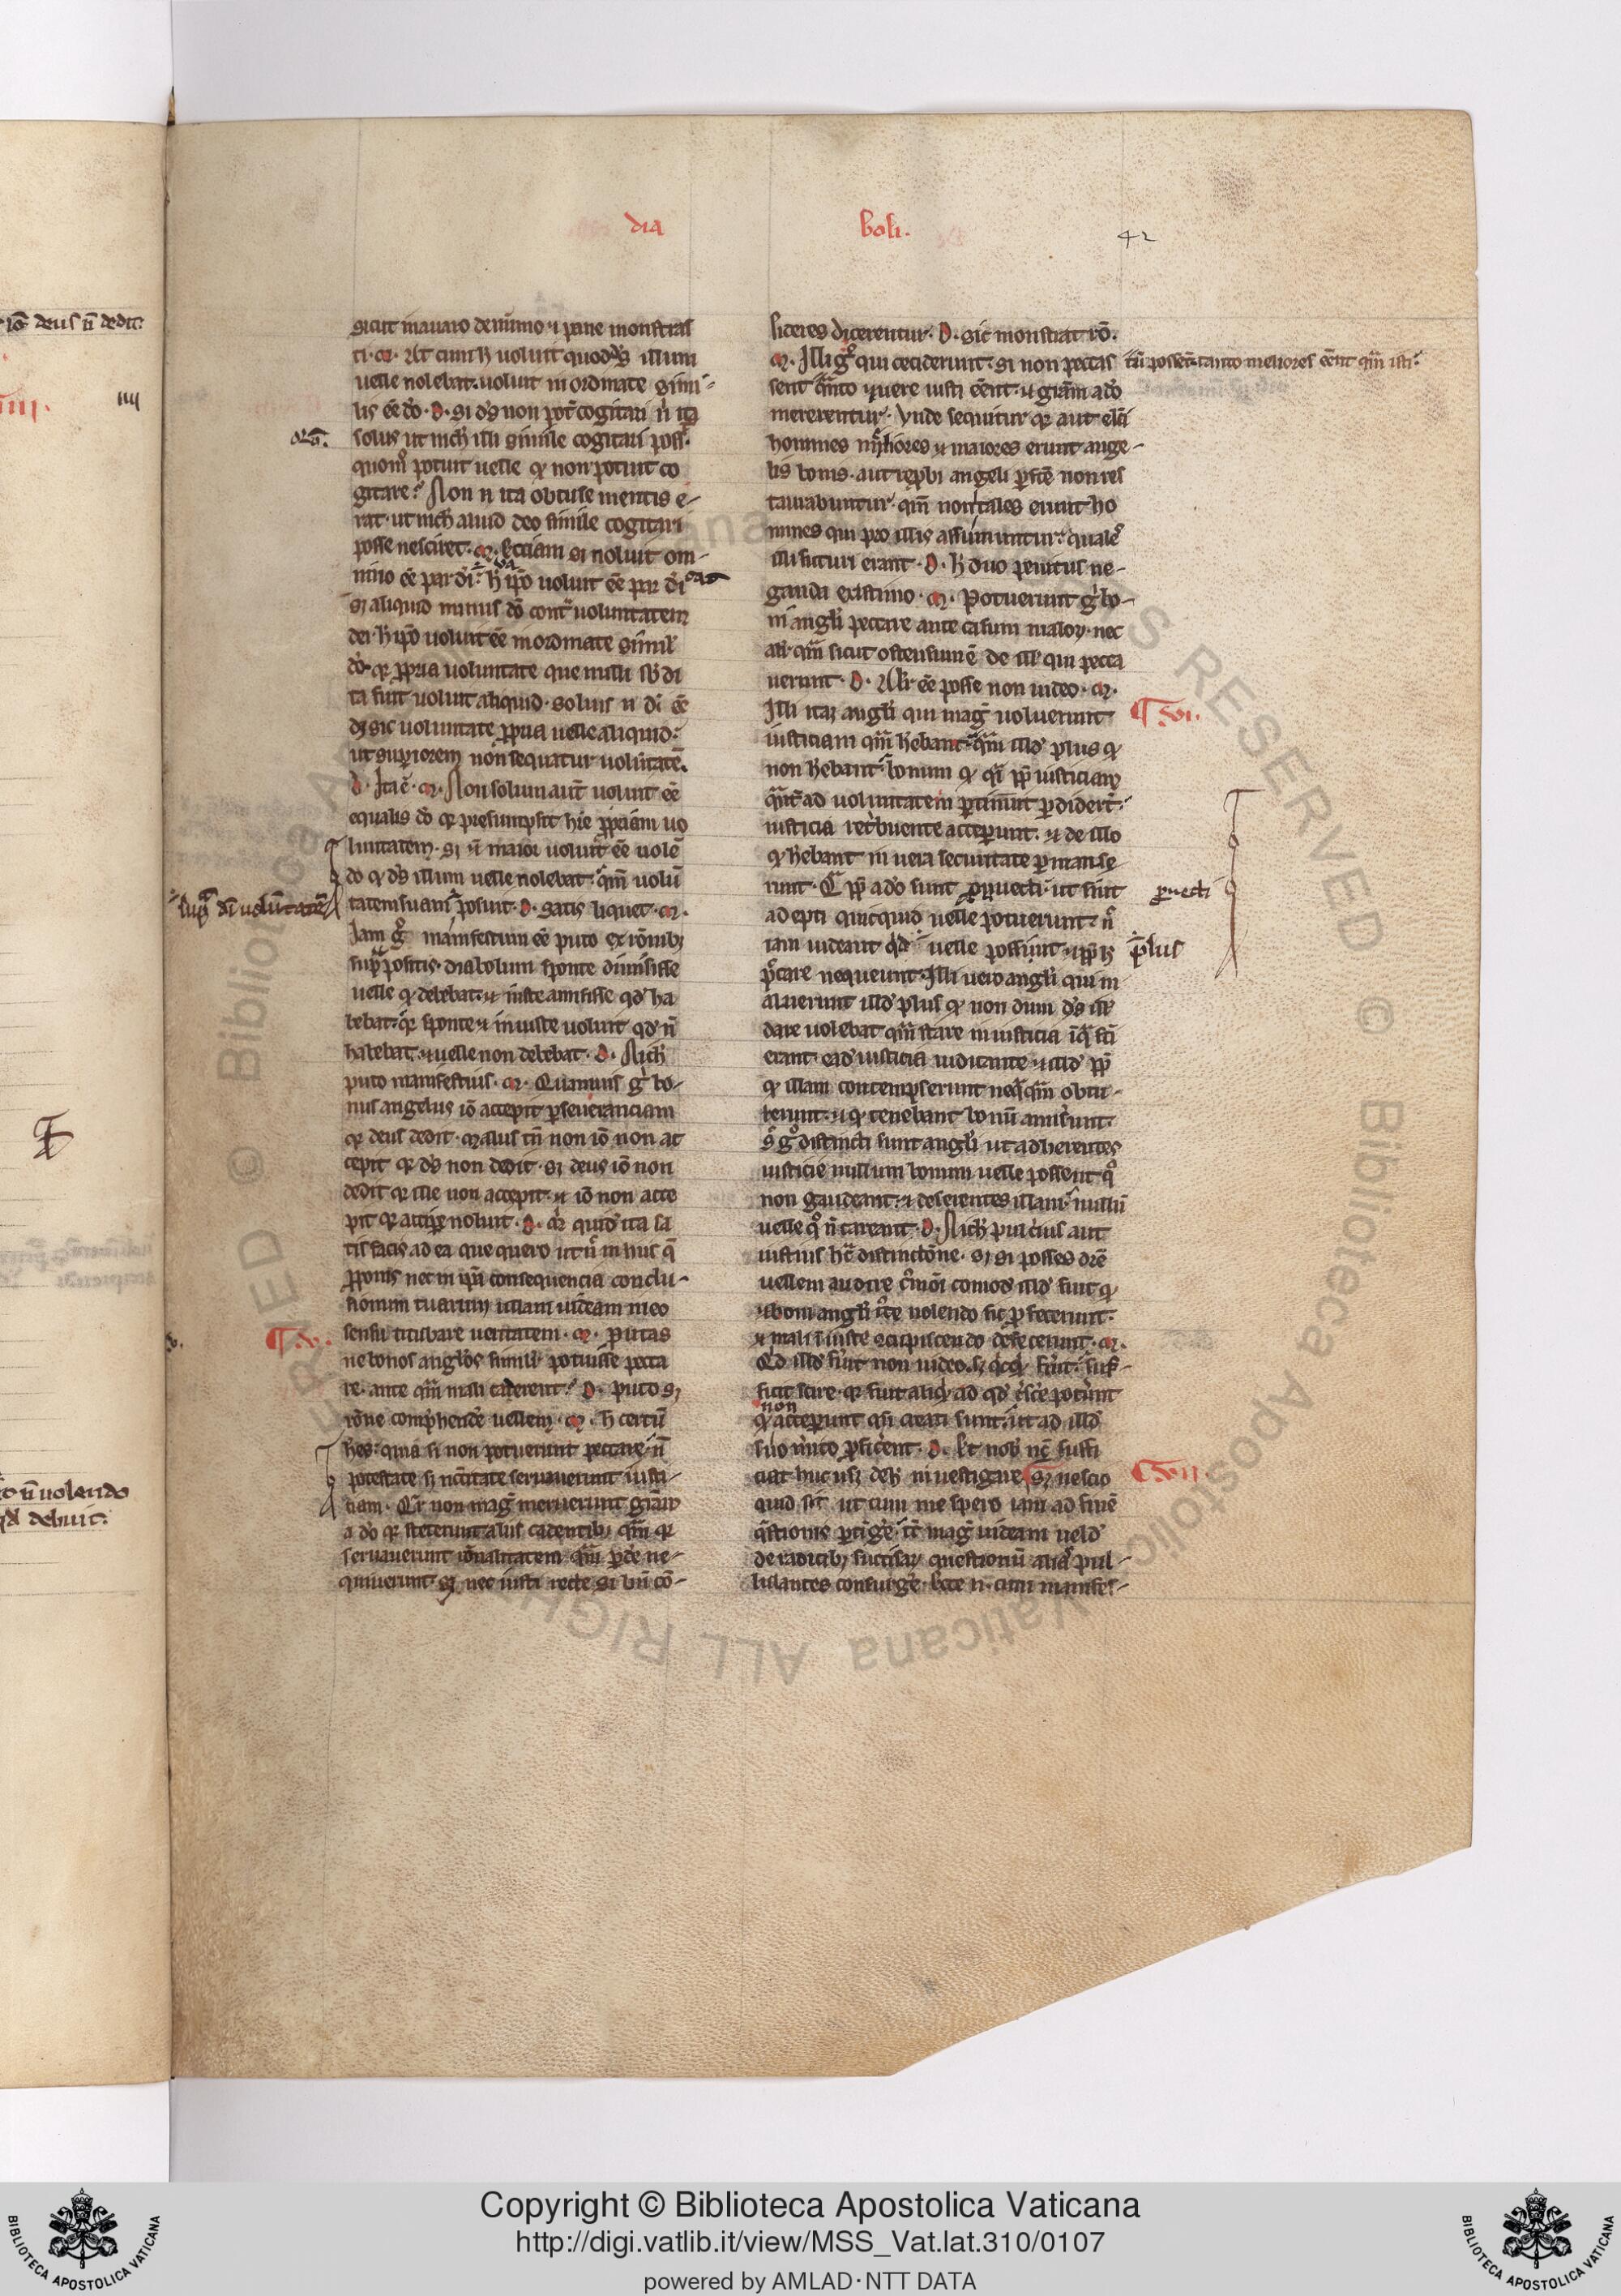 dia boli.
42
sicut in auaro de nūmo ⁊ pane monstras
ti. M. At cum h̄ uoluit quod d̄s illum
uelle nolebat. uoluit inordinate simi
lis eē dō. D. Si d̄s non pot̄ cogitari n̄ ita
solus ut nich̄ illi simile cogitari poss̄.
quom̊ potuit uelle qđ non potuit co
gitare? Non n̄ ita obtuse mentis e-
rat. ut nich̄ aliud deo simile cogitari
posse nesciret. M. Etiam si noluit om-
nino eē par dō. h̄ ip̄o uoluit eē par dī
si aliquid minus dō cont̄ uoluntatem
dei. h̄ ip̄o uoluit eē inordinate simil̄
dō. qr̄ p̄pria uoluntate que nulli sb̄di
ta fuit uoluit aliquid. solius n̄ dī eē
dȝ sic uoluntate p̄pria uelle aliquid.
ut sup̄iorem non sequatur uolūtatē.
D. Ita ē. M. Non solum aut̄ uoluit eē
equalis dō qr̄ presumpsit h̄re p̄priam uo
luntatem. sȝ ⁊ maior uoluit eē uolē
do qđ d̄s illum uelle nolebat. qm̄ uolū
tatem suam posuit. D. Satis liquet. M.
sup̄ dī uolūtatē
Iam g̊ manifestum eē puto ex rōnibȝ
sup̄ positis. diabolum sponte dimisisse
uelle qđ debebat. ⁊ iuste amisisse qd̄ ha
bebat. qr̄ sponte ⁊ iniuste uoluit qd̄ n̄
habebat. ⁊ uelle non debebat. D. Nich̄
puto manifestius. M. Quamuis g̊ bo-
nus angelus iō accepit p̄seueranciam
qr̄ deus dedit. malus tn̄ non iō non ac
cepit qr̄ d̄s non dedit. sȝ deus iō non
dedit qr̄ ille non accepit. ⁊ iō non acce
pit qr̄ accip̄e noluit. D. M̄ quid̄ ita sa
tis facis ad ea que quero ut n̄ in hiis q̄
p̄ponis nec in ip̄a consequencia conclu-
sionum tuarum ullam uideam meo
sensu titubare ueritatem. M. Putas
¶ .v.
ne bonos angl̄os simil̄r potuisse pecca
re. ante qm̄ mali caderent? D. Puto sȝ
rōne comp̄hende uellem. M. H̄ certū
h̄es. quia si non potuerunt peccare. n̄
potestate sȝ nc̄itate seruauerunt iusti-
ciam. Qr̄ non maḡ meruerunt grām
a dō qr̄ steterunt aliis cadentibȝ qm̄ qr̄
seruauerunt rōnalitatem qm̄ p̄de ne-
quiuerunt. sȝ nec iusti recte si bn̄ cō-
sideres dicerentur. D. Sic monstrat rō.
M. Illi g̊ qui ceciderunt. si non peccas
tū possēt. tanto meliores eēnt qm̄ isti.
sent qn̄to ⁊ uere iusti eēnt. ⁊ grām a dō
mererentur. Vnde sequitur qr̄ aut elc̄i
homines meliores ⁊ maiores erunt ange-
lis bonis. aut rep̄bi angeli p̄fc̄e non res
taurabuntur. qm̄ non tales erunt ho
mines qui pro illis assumuntur. quales
illi futuri erant. D. H̄ duo penitus ne-
ganda existimo. M. Potuerunt g̊ bo-
ni angl̄i peccare ante casum malorȝ. nec
alr̄. qm̄ sicut ostensum ē de ill̄ qui pecca
uerunt. D. Alr̄ eē posse non uideo. M.
Illi itaȝ angl̄i qui maḡ uoluerunt
¶ .vi.
iusticiam qm̄ h̄ebant. qm̄ illd̄ plus qđ
non h̄ebant. bonum qđ q̄i pp̄ iusticiam
q̄ntū ad uoluntatem p̄tinuit p̄didert̄.
iusticia ret̄buente acceperunt. ⁊ de illo
qđ h̄ebant in uera securitate p̄manse
runt. Q̄ pp̄ adō sunt p̄uecti. ut sint
p̄uecti
adepti quicquid uelle potuerunt. n̄
iam uideant qd̄ uelle possunt. ⁊ pp̄ h̄
plus
p̄ccare nequeunt. Illi uero angl̄i qui m
aluerunt illd̄ plus qđ non dum d̄s ill̄
dare uolebat qm̄ stare in iusticia ī q̄ fc̄i
erant. ead̄ iusticia iudicante ⁊ illd̄ pp̄
qđ illam contempserunt neq̄qm̄ obtu-
tenunt. ⁊ qđ tenebant bonū amiserunt.
S̄ g̊ distincti sunt angl̄i ut adherentes
iusticie nullum bonum uelle possent q̊
non gaudeant. ⁊ deserentes illam. nullū
uelle q̊ n̄ careant. D. Nich̄ pulcrius aut
iustius hac distinctōne. sȝ si posses dr̄e
uellem audire c̄moī comod̄ illd̄ fuit qđ
⁊ boni angl̄i iuste nolendo sic p̄fecerunt.
⁊ mali iniuste ɔcupiscendo defecerunt. M.
Qd̄ illd̄ fuit non uideo. sȝ qcqđ fuit. suf-
ficit scire qr̄ fuit aliqđ ad qd̄ c̄sce potuerunt
non
qđ acceperunt qn̄ creati sunt. ut ad illd̄
suo m̄ito p̄ficerent. D. Et nob̄ nc̄ suffi
ciat huc usȝ deh̄ inuestigare. Sȝ nescio
¶ .vii.
quid sit ut cum me spero iam ad finē
q̄stionis p̄tig̊e. tc̄ maḡ uideam uelud̄
de radicibȝ succisarȝ questionū alias pul-
lulantes consurg̊e. Ecce n̄. cum manifes-
ıııı
.v.
iō deus n̄ dedit.
n̄ uolendo
debuit.
Copyright © Biblioteca Apostolica Vaticana
http://digi.vatlib.it/view/MSS_Vat.lat.310/0107
powered by AMLAD·NTT DATA
BIBLIOTECA APOSTOLICA VATICANA
BIBLIOTECA APOSTOLICA VATICANA
© Biblioteca Apostolica Vaticana ALL RIGHTS RESERVED